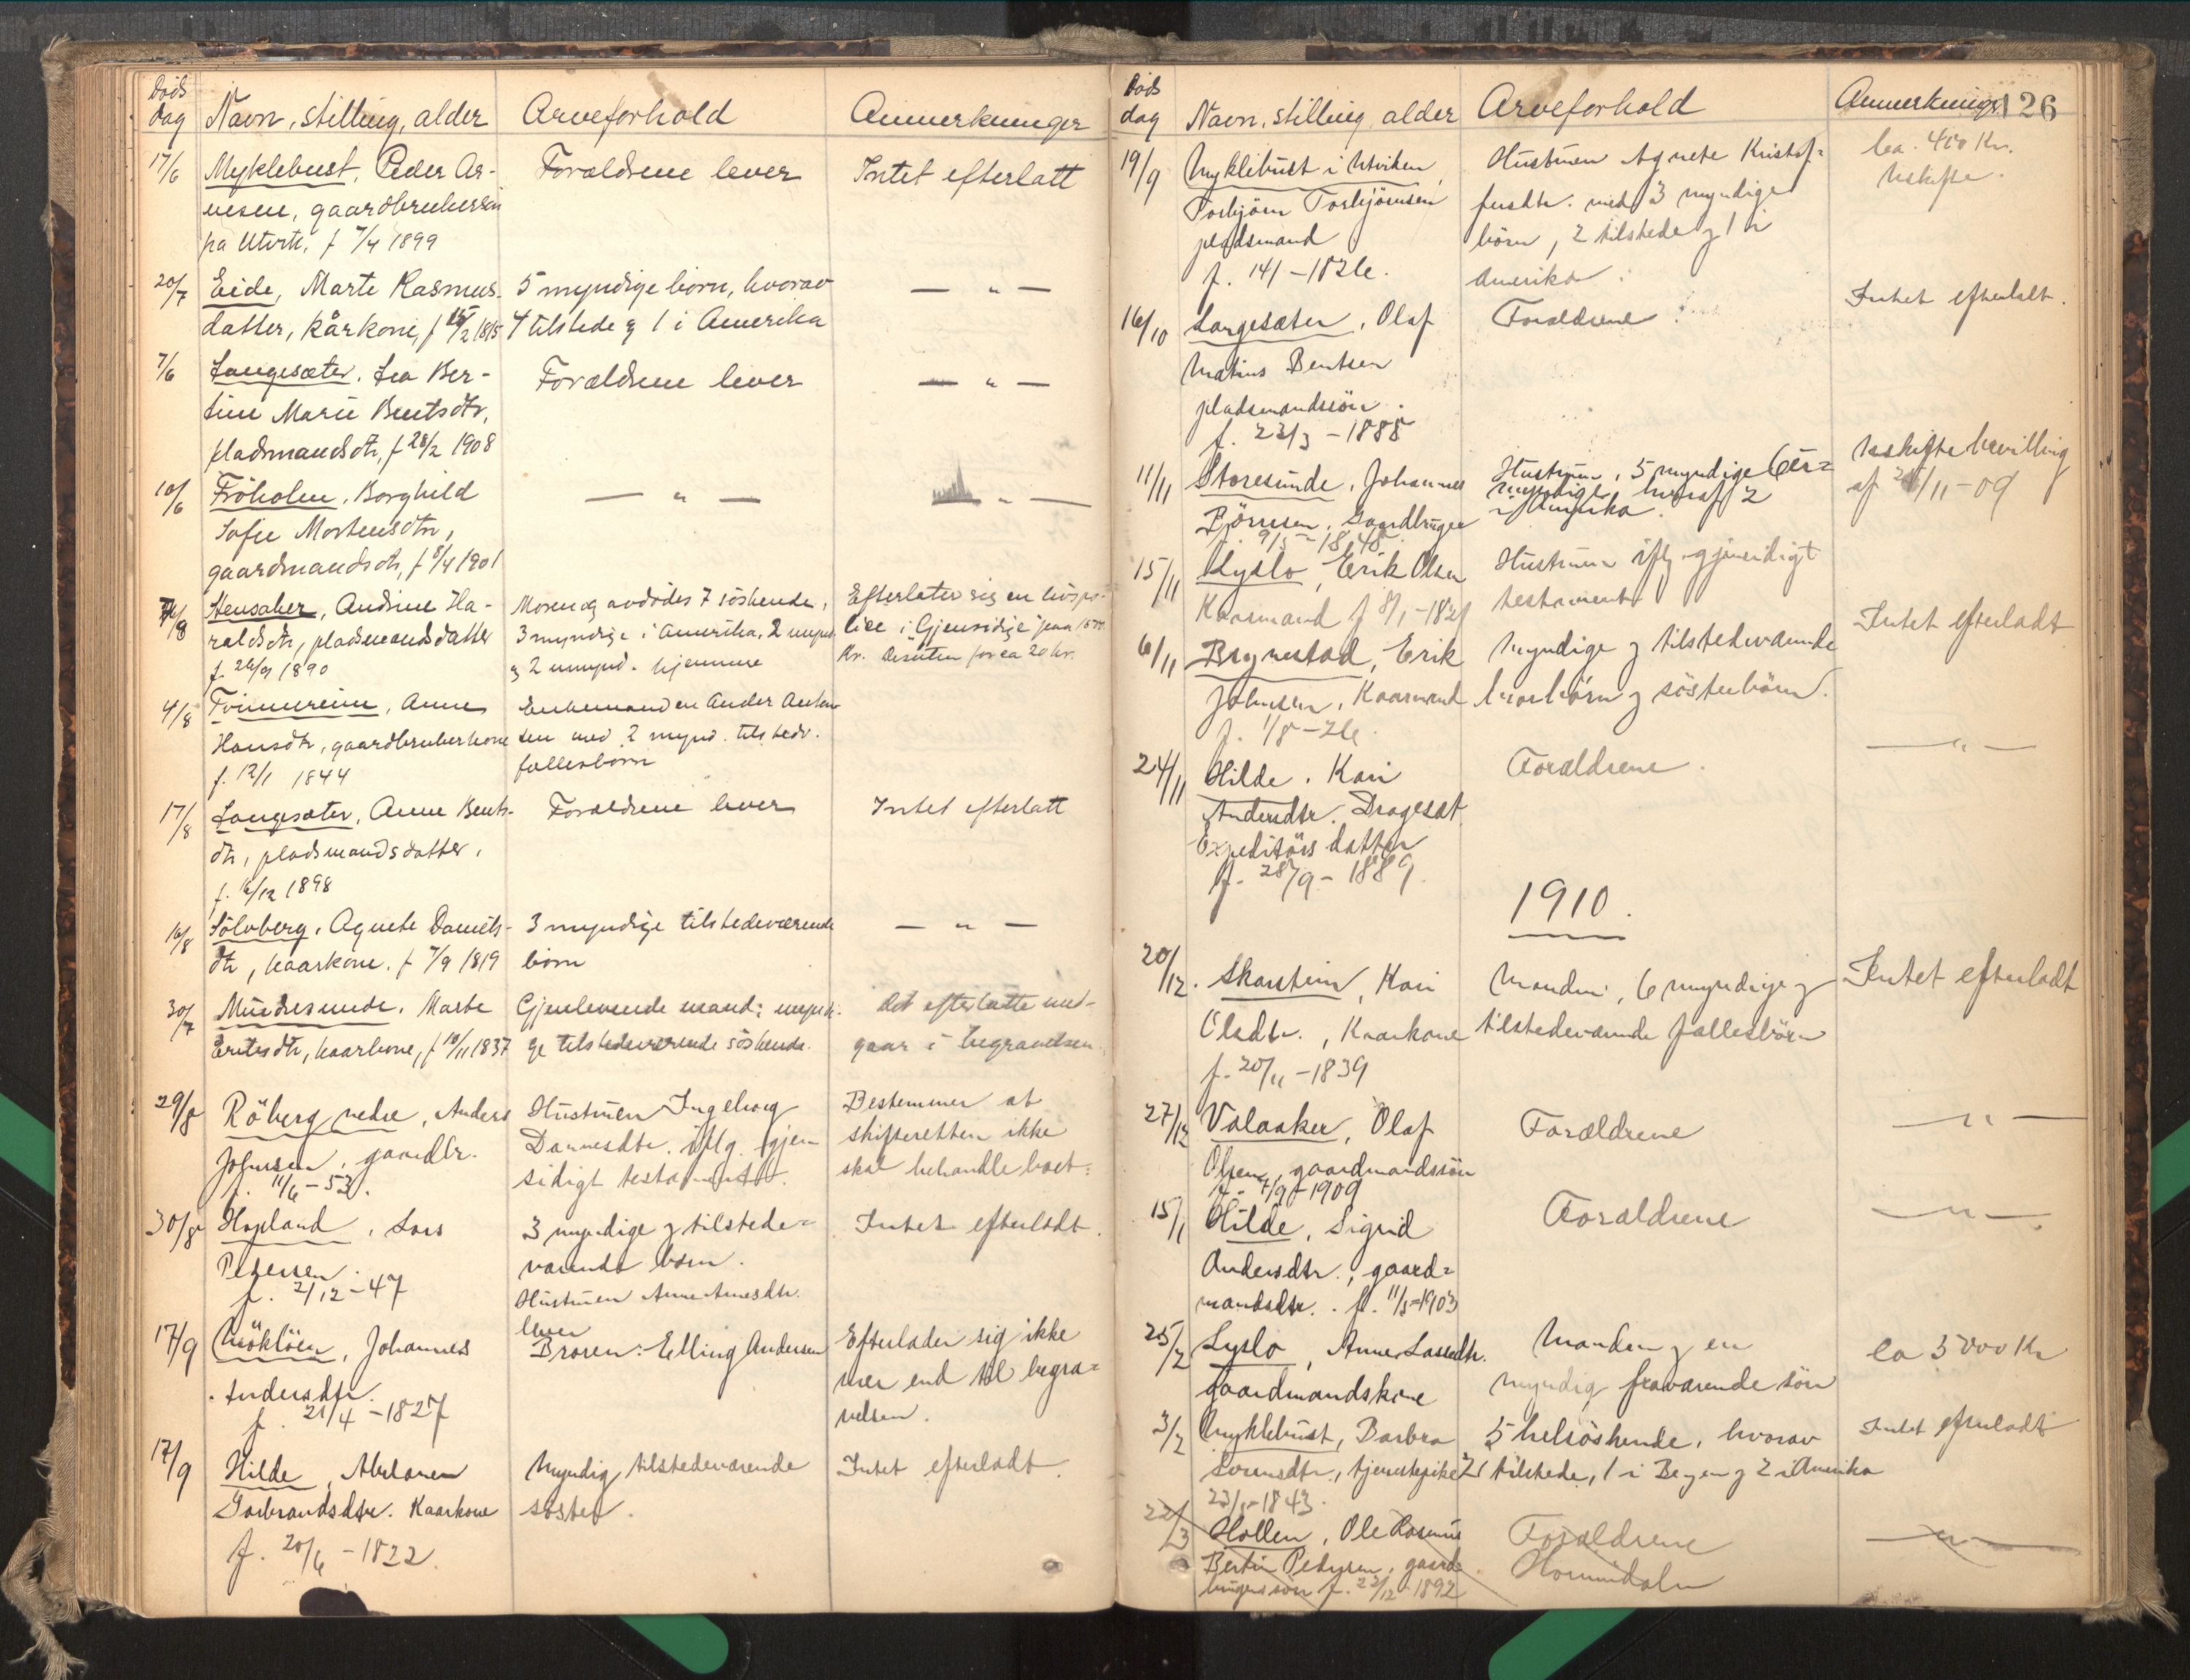 Døds
dag Navn, stilling, alder Arveforhold Anmerkninger
17/6 Myklebust, Peder Ar- Forældrene lever Intet efterlatt
nesen, gaardbrukersøn
paa Utvik, f 7/4 1899
20/7 Eide, Marte Rasmus- 5 myndige børn, hvorav — " —
datter, kårkone, f 15/2 1815 4 tilstede og 1 i Amerika
7/6 Langesæter, Lea Ber- Forældrene lever — " —
tine Marie Bentsdtr,
pladsmandsdtr, f 28/2 1908
10/6 Fröholm, Borghild — " — — " —
Sofie Mortensdtr,
gaardmandsdtr, f 8/4 1901
/8 Stensaker, Andrine Ha- Moren og avdødes 7 söskende, Efterlater sig en livspo-
raldsdtr, pladsmandsdatter 3 myndige i Amerika, 2 mynd. lice i "Gjensidige" paa
f. 26/9 1890 og 2 umynd. hjemme Kr. Desuten for ca 20 kr.
4/8 Tvinnereim, Anne Enkemanden Ander Anton
Hansdtr, gaardbrukerkone sen med 2 mynd. tilstedv.
f. 12/1 1844 fællesbørn
17/8 Langesæter, Anne Bents- Forældrene lever Intet efterlatt
dtr, pladsmandsdatter,
f. 16/12 1898
16/8 Sölvberg, Agnete Daniels- 3 myndige tilstedeværende — " —
dtr, kaarkone. f 7/9 1819 børn
30/7 Mundresunde, Marte Gjenlevende mand; myndi- Det efterlatte med-
Eritsdtr, kaarkone, f 10/11 1837 ge tilstedeværende söskende. gaar i begravelsen.
29/8 Röberg nedre, Anders Hustruen Ingeborg Bestemmer at
Johnsen, gaardbr. Dannesdtr. iflg. gjen- skifteretten ikke
f. 11/6 - 53. sidigt testament. skal behandle boet.
30/8 Hopland, Lars 3 myndige og tilstede= Intet efterladt.
Petersen. værende børn.
f. 2/12 - 47 Hustruen Anne Arnesdtr.
lever
17/9 Möklöen, Johannes Broren: Elling Andersen Efterlader sig ikke
Andersdtr. mer end til begra=
f. 21/4 - 1827 velsen.
17/9 Hilde, Abelonen Myndig, tilstedeværende Intet efterladt.
Gorbrandsdtr. Kaarkone söster.
f. 20/6 - 1822.
126
Døds
dag Navn, stilling, alder Arveforhold Anmerkninger
19/9 Myklebust i Utviken, Hustruen Agnete Kristof= ca. 400 Kr.
Torbjörn Torbjörnsen fersdtr. med 3 myndige Uskifte.
pladsmand börn, 2 tilstede og 1 i
f. 14/1 - 1826. Amerika.
16/10 Langesæter, Olaf Forældrene Intet efterladt.
Matius Bentsen
pladsmandssön.
f. 23/3 - 1888
11/11 Storesunde, Johannes Hustruen, 5 myndige Uskiftebevilling
Björnsen, Gaardbruger hvoraf 2 af 24/11 - 09
f. 9/5 - 1848. i Amerika.
15/11 Lyslo, Erik Olsen Hustruen iflg. gjensidigt
Kaarmand f 8/1 - 1821 testament.
6/11 Brynestad, Erik Myndige og tilstedeværende Intet efterladt
Johnsen, Kaarmand brorbörn og sösterbörn.
f. 1/8 - 26.
24/11 Hilde, Kari Forældrene. — " —
Andersdtr. Dragesæt
Expeditörs datter
f. 28/9 - 1889.
1910.
20/12. Skarstein, Kari Manden, 6 myndige og Intet efterladt
Olsdtr., Kaarkone tilstedeværende fællesbörn
f. 20/11 - 1839
27/12 Valaaker, Olaf Forældrene — " —
Olsen, gaardmandssön
f. 7/9 - 1909
15/1 Hilde, Sigrid Forældrene — " —
Andersdtr., gaard=
mandsdtr.. f. 11/5 - 1903
25/2 Lyslo, Anne Lassedtr. Manden og en ca 3000 Kr
gaardmandskone myndig fraværende sön
3/2 Myklebust, Barbra 5 helsöskende, hvorav Intet efterladt
Sorensdtr., tjenestepike 2 tilstede, 1 i Bergen og 2 i Amerika
23/1 - 1843.
22/3 Hollen, Ole Rasmus Forældrene — " —
Bertin Petersen, gaard Hornindalen
brugers sön f. 22/12 - 1892